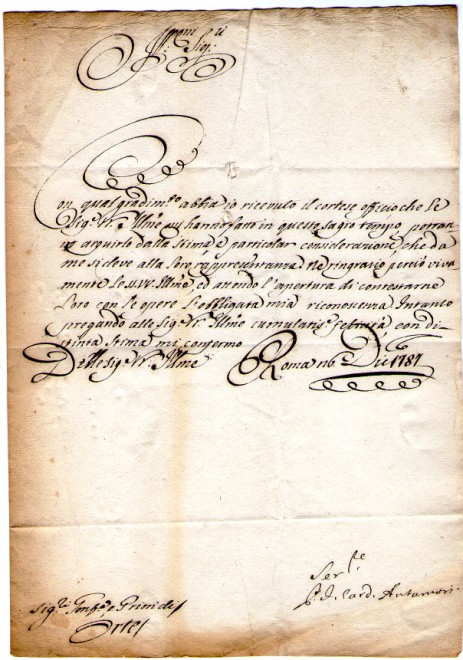 Ill.mi Sig.ri
Con qual gradim.to abbia io ricevuto il cortese officio che le
Sig.e V.e Ill.me mi hanno fatto in questo sagro tempo, potran
no arguirlo dalla stima, e particolar considerazione, che da
me si deve alla loro rappresentanza. Ne ringrazio perciò viva
mente le SS.VV. Ill.me, ed avendo l'apertura di contestarne
loro con le opere l'efficace mia riconoscenza. Intanto
pregando alle Sig.e V.e Ill.me cumulatis.e felicità con di
stinta stima mi confermo
Delle Sig.e V.e Ill.me Roma 16 Dic.e 1787
Ser.re
Card. Antamori
Sig.ri Conf.e e Priori di
Orte